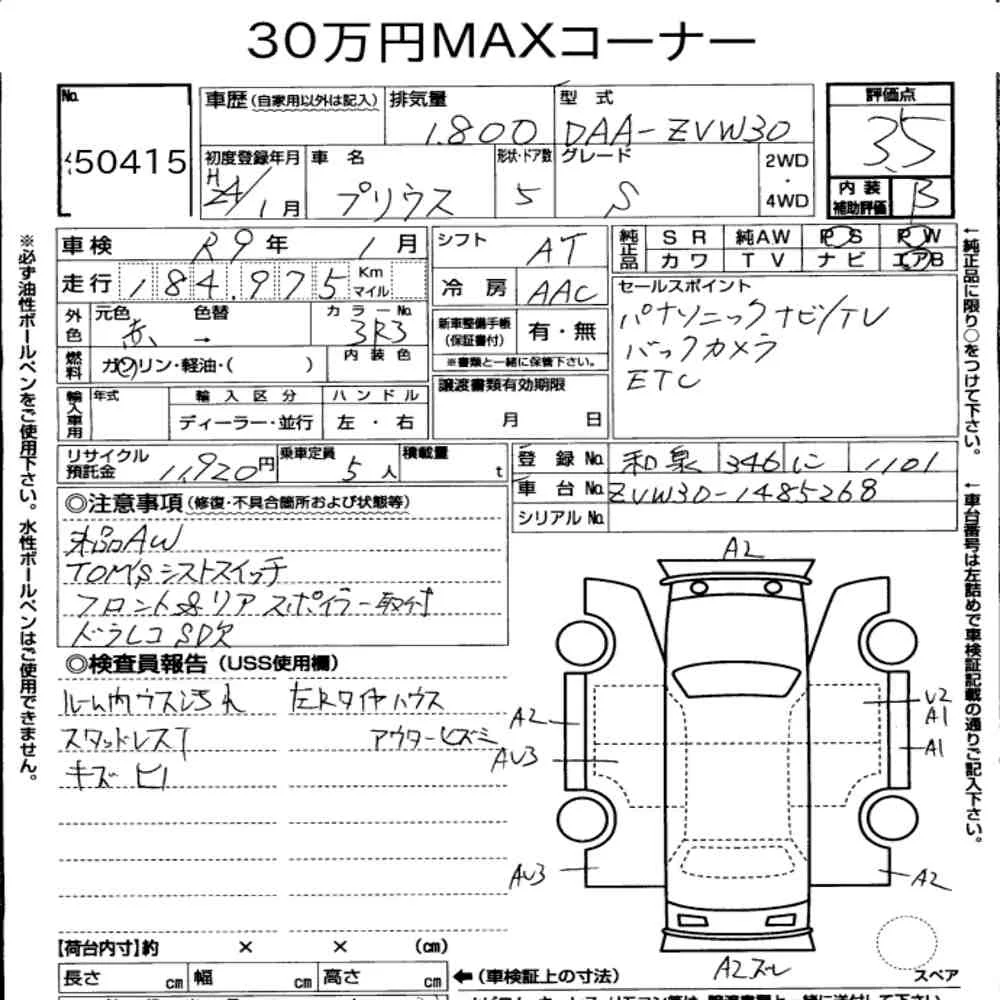 30万円MAXコーナー
No. 50415
車歴(自家用以外は記入) 排気量 1.800 型式 DAA-ZVW30
評価点 3.5
内装補助評価 B
初度登録年月 H24/1月 車名 プリウス 形状・ドア数 5 グレード S 2WD・4WD
車検 R9年 1月 シフト AT
純正品 SR 純AW PS PW
カワ TV ナビ エアB
走行 184.975 Km マイル 冷房 AAC
セールスポイント
パナソニックナビ/TV
バックカメラ
ETC
外色 元色 赤 → 色替 カラーNo. 3R3
新車整備手帳(保証書付) 有・無
※書類と一緒に保管下さい。
燃料 ガソリン・軽油・( ) 内装色
譲渡書類有効期限 月 日
輸入車用 年式 輸入区分 ハンドル
ディーラー・並行 左・右
リサイクル預託金 11,920円 乗車定員 5人 積載量 t
登録No. 和泉 346 に 1101
車台No. ZVW30-1485268
シリアルNo.
◎注意事項(修復・不具合箇所および状態等)
社品AW
TOM'S シストスイッチ
フロント&リアスポイラー取付
ドラレコSD欠
◎検査員報告(USS使用欄)
ルーム内ウスヨゴれ 左Rタイヤハウス
スタッドレスT アウターヒズミ
キズ ヒ1
A2
A2
AU3
AU3
U2
A1
A1
A2
A2スレ
スペア
【荷台内寸】約 × × (cm)
長さ cm 幅 cm 高さ cm ←(車検証上の寸法)
※必ず油性ボールペンをご使用下さい。水性ボールペンはご使用できません。
←純正品に限り○をつけて下さい。
←車台番号は左詰めで車検証記載の通りご記入下さい。